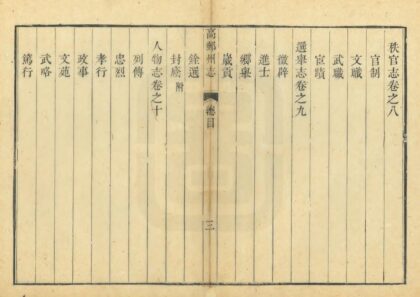 秩官志卷之八
官制
文職
武職
宦蹟
選舉志卷之九
徵辟
進士
鄉舉
歲貢
高郵州志
總目
三
銓選
封廕附
人物志卷之十
列傳
忠烈
孝行
政事
文苑
武略
篤行